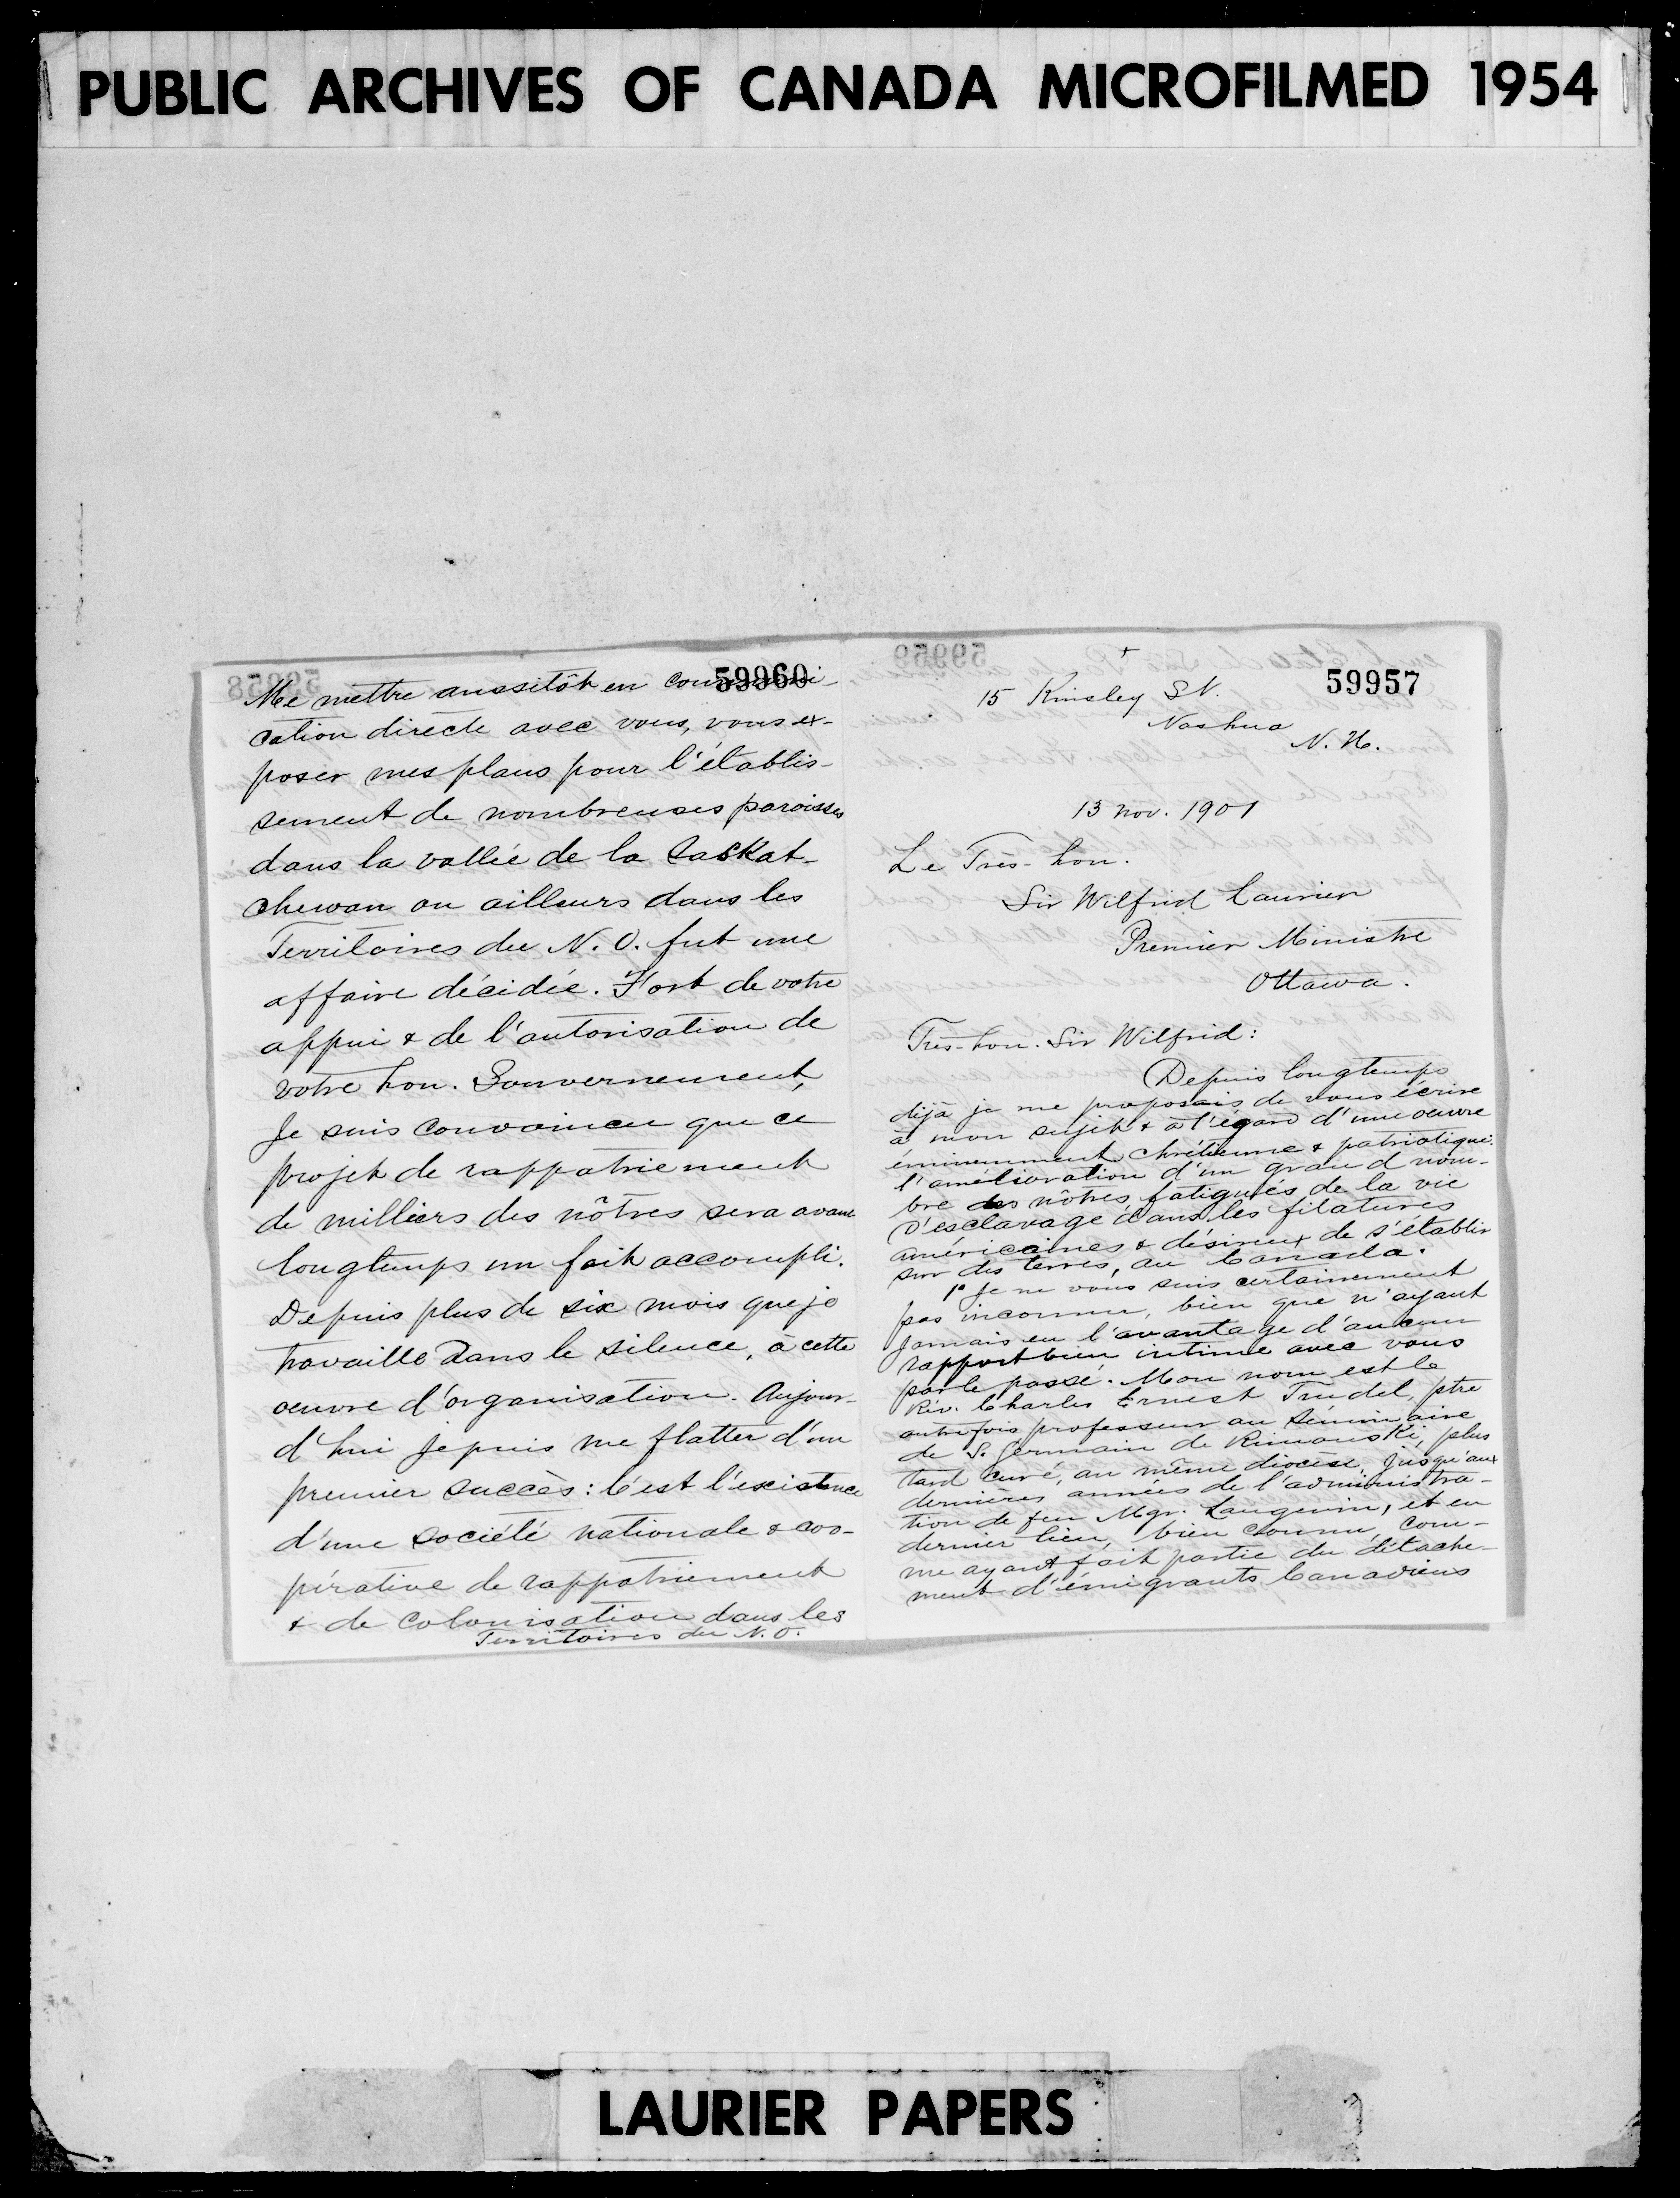 PUBLIC ARCHIVES OF CANADA MICROFILMED 1954
59960
Me mettre aussitôt en communi-
cation directe avec vous, vous ex-
poser mes plans pour l'établis-
sement de nombreuses paroisses
dans la vallée de la Saskat-
chewan ou ailleurs dans les
Territoires du N. O. fut une
affaire décidée. Fort de votre
appui & de l'autorisation de
votre hon. Gouvernement,
Je suis convaincu que ce
projet de rappatriement
de milliers des nôtres sera avant
longtemps un fait accompli.
Depuis plus de six mois que je
travaille dans le silence, à cette
oeuvre d'organisation. Aujour-
d'hui je puis me flatter d'un
premier succès: C'est l'existence
d'une société nationale & coo-
pérative de rappatriement
& de colonisation dans les
Territoires du N. O.
59957
15 Kinsley St.
Nashua
N. H.
13 nov. 1901
Le Très-hon.
Sir Wilfrid Laurier
Premier Ministre
Ottawa.
Très-hon. Sir Wilfrid:
Depuis longtemps
déjà je me proposais de vous écrire
à mon sujet & à l'égard d'une oeuvre
éminemment chrétienne & patriotique:
l'amélioration d'un grand nom-
bre des nôtres fatigués de la vie
d'esclavage dans les filatures
américaines & désireux de s'établir
sur des terres, au Canada.
1° Je ne vous suis certainement
pas inconnu, bien que n'ayant
jamais eu l'avantage d'aucun
rapport bien intime avec vous
par le passé. Mon nom est le
Rév. Charles Ernest Trudel, ptre
autrefois professeur au Séminaire
de S. Germain de Rimouski, plus
tard curé, au même diocèse, jusqu'aux
dernières années de l'administra-
tion de feu Mgr. Langevin, et en
dernier lieu, bien connu, com-
me ayant fait partie du détache-
ment d'émigrants Canadiens
LAURIER PAPERS